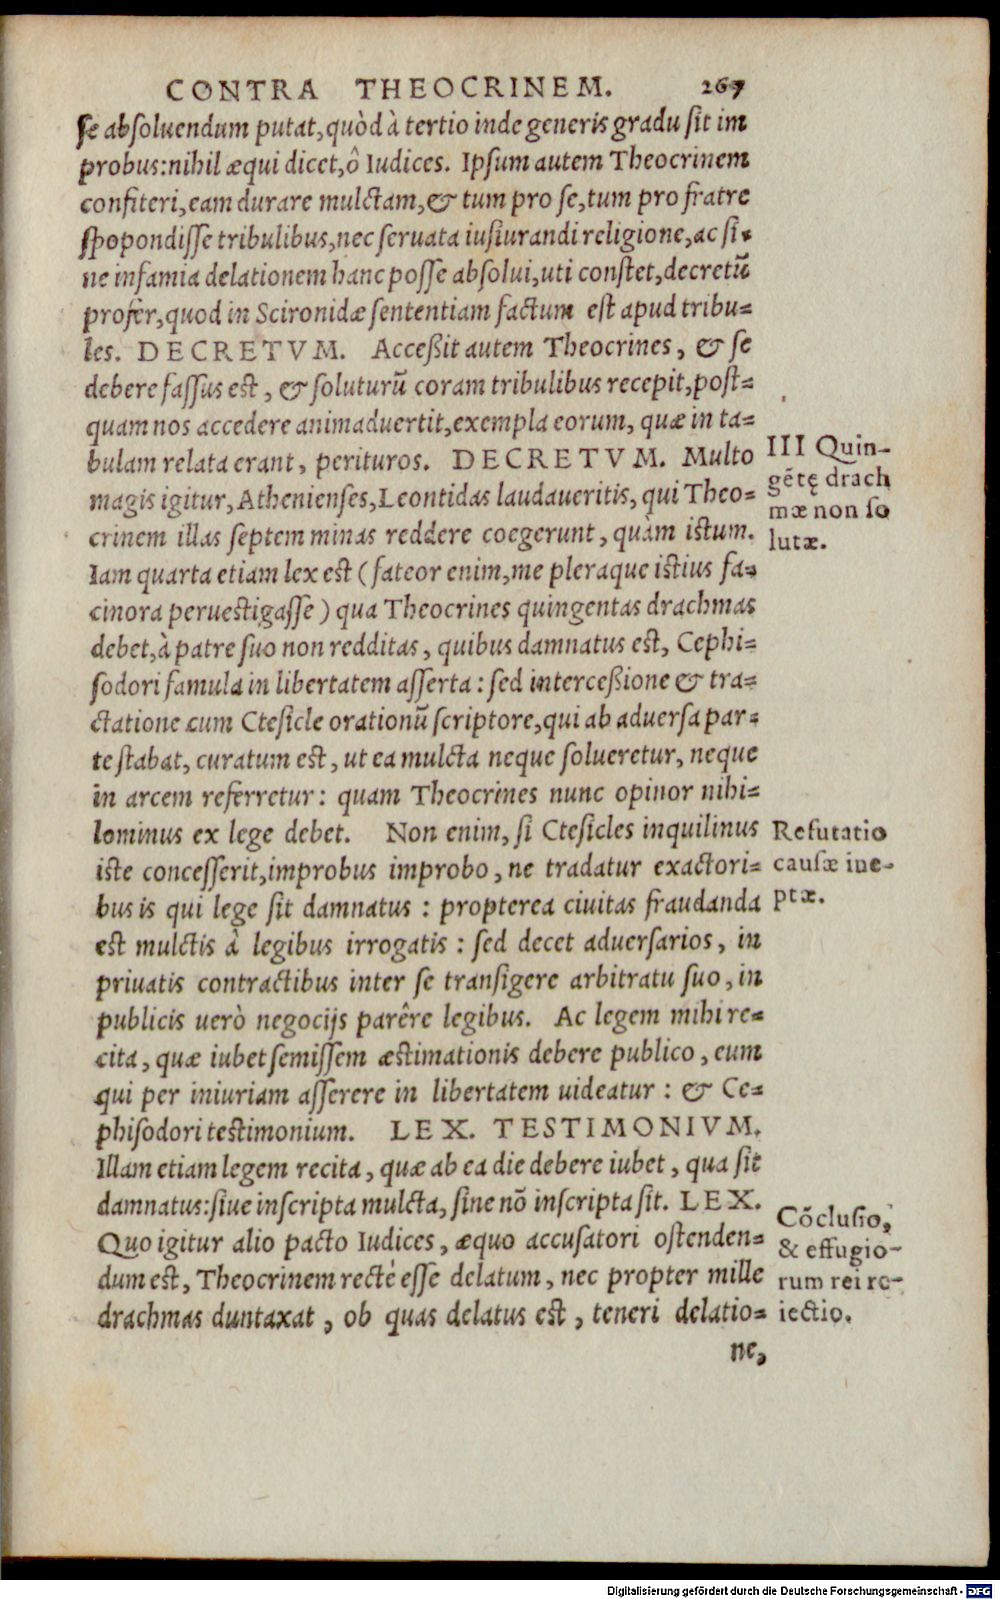 CONTRA THEOCRINEM. 267
se absoluendum putat, quòd à tertio inde generis gradu sit im
probus: nihil æqui dicet, ô Iudices. Ipsum autem Theocrinem
confiteri, eam durare mulctam, & tum pro se, tum pro fratre
spopondisse tribulibus, nec seruata iusiurandi religione, ac si-
ne infamia delationem hanc posse absolui, uti constet, decretũ
profer, quod in Scironidæ sententiam factum est apud tribu-
les. DECRETVM. Acceßit autem Theocrines, & se
debere fassus est, & soluturũ coram tribulibus recepit, post-
quam nos accedere animaduertit, exempla eorum, quæ in ta-
bulam relata erant, perituros. DECRETVM. Multo
magis igitur, Athenienses, Leontidas laudaueritis, qui Theo-
crinem illas septem minas reddere coegerunt, quàm istum.
Iam quarta etiam lex est (fateor enim, me pleraque istius fa-
cinora peruestigasse) qua Theocrines quingentas drachmas
debet, à patre suo non redditas, quibus damnatus est, Cephi-
sodori famula in libertatem asserta: sed interceßione & tra-
ctatione cum Ctesicle orationũ scriptore, qui ab aduersa par-
te stabat, curatum est, ut ea mulcta neque solueretur, neque
in arcem referretur: quam Theocrines nunc opinor nihi-
lominus ex lege debet. Non enim, si Ctesicles inquilinus
iste concesserit, improbus improbo, ne tradatur exactori-
bus is qui lege sit damnatus: propterea ciuitas fraudanda
est mulctis à legibus irrogatis: sed decet aduersarios, in
priuatis contractibus inter se transigere arbitratu suo, in
publicis uerò negocijs parêre legibus. Ac legem mihi re-
cita, quæ iubet semissem æstimationis debere publico, eum
qui per iniuriam asserere in libertatem uideatur: & Ce-
phisodori testimonium. LEX. TESTIMONIVM.
Illam etiam legem recita, quæ ab ea die debere iubet, qua sit
damnatus: siue inscripta mulcta, siue nõ inscripta sit. LEX.
Quo igitur alio pacto Iudices, æquo accusatori ostenden-
dum est, Theocrinem recté esse delatum, nec propter mille
drachmas duntaxat, ob quas delatus est, teneri delatio-
ne,
III Quin-
gẽtę drach
mæ non so
lutæ.
Refutatio
causæ ine-
ptæ.
Cõclusio,
& effugio-
rum rei re-
iectio.
Digitalisierung gefördert durch die Deutsche Forschungsgemeinschaft - DFG